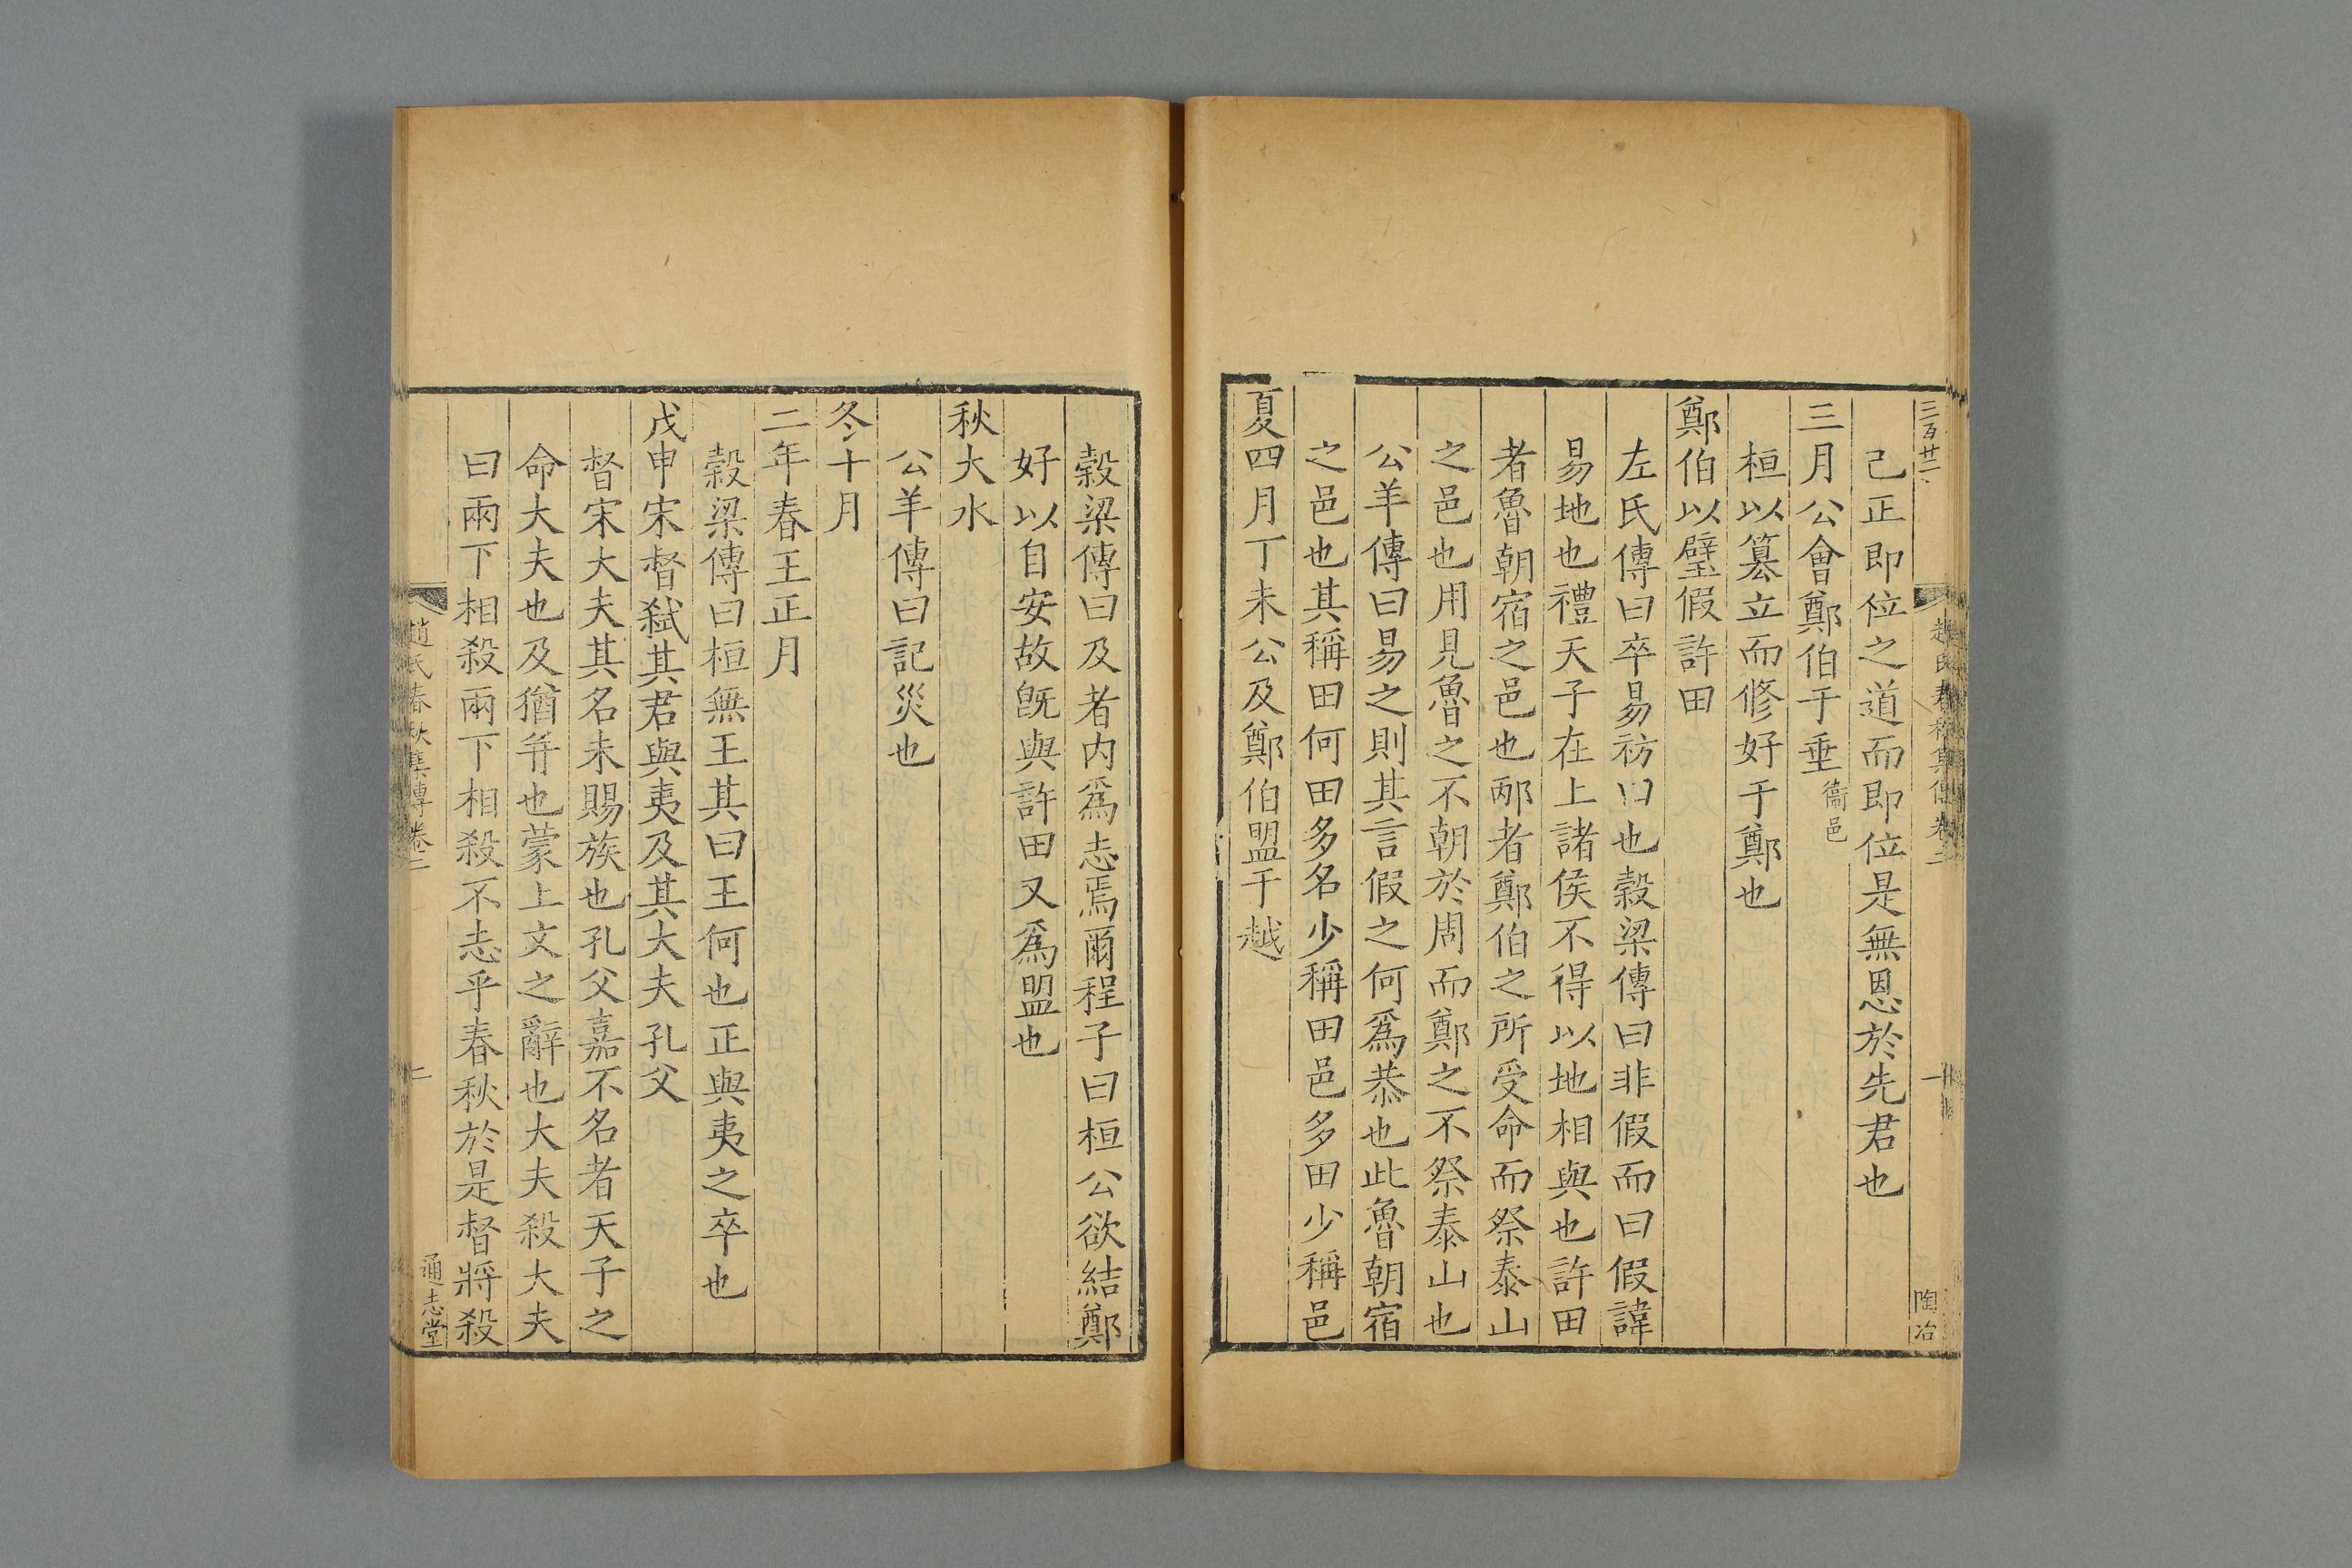 三百廿二
趙氏春秋集傳卷二
一
陶冶
己正即位之道而即位是無恩於先君也
三月公會鄭伯于垂衞邑
桓以簒立而修好于鄭也
鄭伯以璧假許田
左氏傳曰卒易祊田也榖梁傳曰非假而曰假諱
易地也禮天子在上諸侯不得以地相與也許田
者魯朝宿之邑也邴者鄭伯之所受命而祭泰山
之邑也用見魯之不朝於周而鄭之不祭泰山也
公羊傳曰易之則其言假之何爲恭也此魯朝宿
之邑也其稱田何田多名少稱田邑多田少稱邑
夏四月丁未公及鄭伯盟于越
榖梁傳曰及者内爲志焉爾程子曰桓公欲結鄭
好以自安故旣與許田又爲盟也
秋大水
公羊傳曰記災也
冬十月
二年春王正月
榖梁傳曰桓無王其曰王何也正與夷之卒也
戊申宋督弑其君與夷及其大夫孔父
督宋大夫其名未賜族也孔父嘉不名者天子之
命大夫也及猶并也蒙上文之辭也大夫殺大夫
曰兩下相殺兩下相殺不志乎春秋於是督將殺
趙氏春秋集傳卷二
二
通志堂